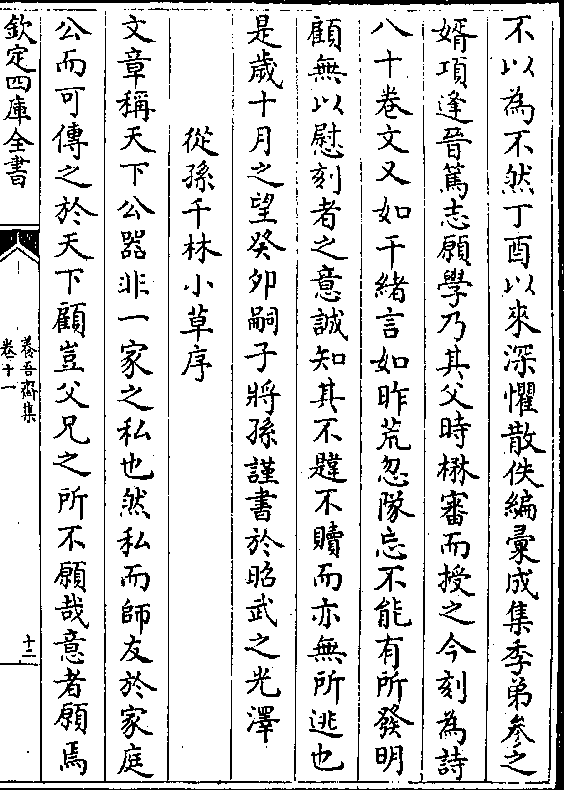 不以為不然丁酉以來深懼散佚編彙成集季弟參之
婿項逢晉篤志願學乃其父時楙審而授之今刻為詩
八十卷文又如干緒言如昨荒忽隊忘不能有所發明
顧無以慰刻者之意誠知其不韙不贖而亦無所逃也
是歲十月之望癸卯嗣子將孫謹書於昭武之光澤
從孫千林小草序
文章稱天下公器非一家之私也然私而師友於家庭
公而可傳之於天下顧豈父兄之所不願哉意者願焉
欽定四庫全書
養吾齋集
卷十一
十二